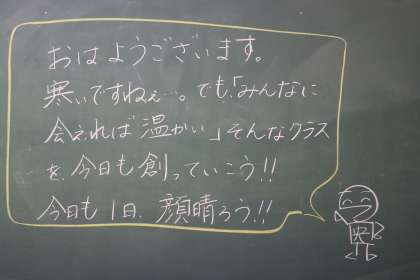 おはようございます。
寒いですねぇ…。でも、「みんなに
会えれば温かい」そんなクラス
を、今日も創っていこう!!
今日も1日、顔晴ろう!!